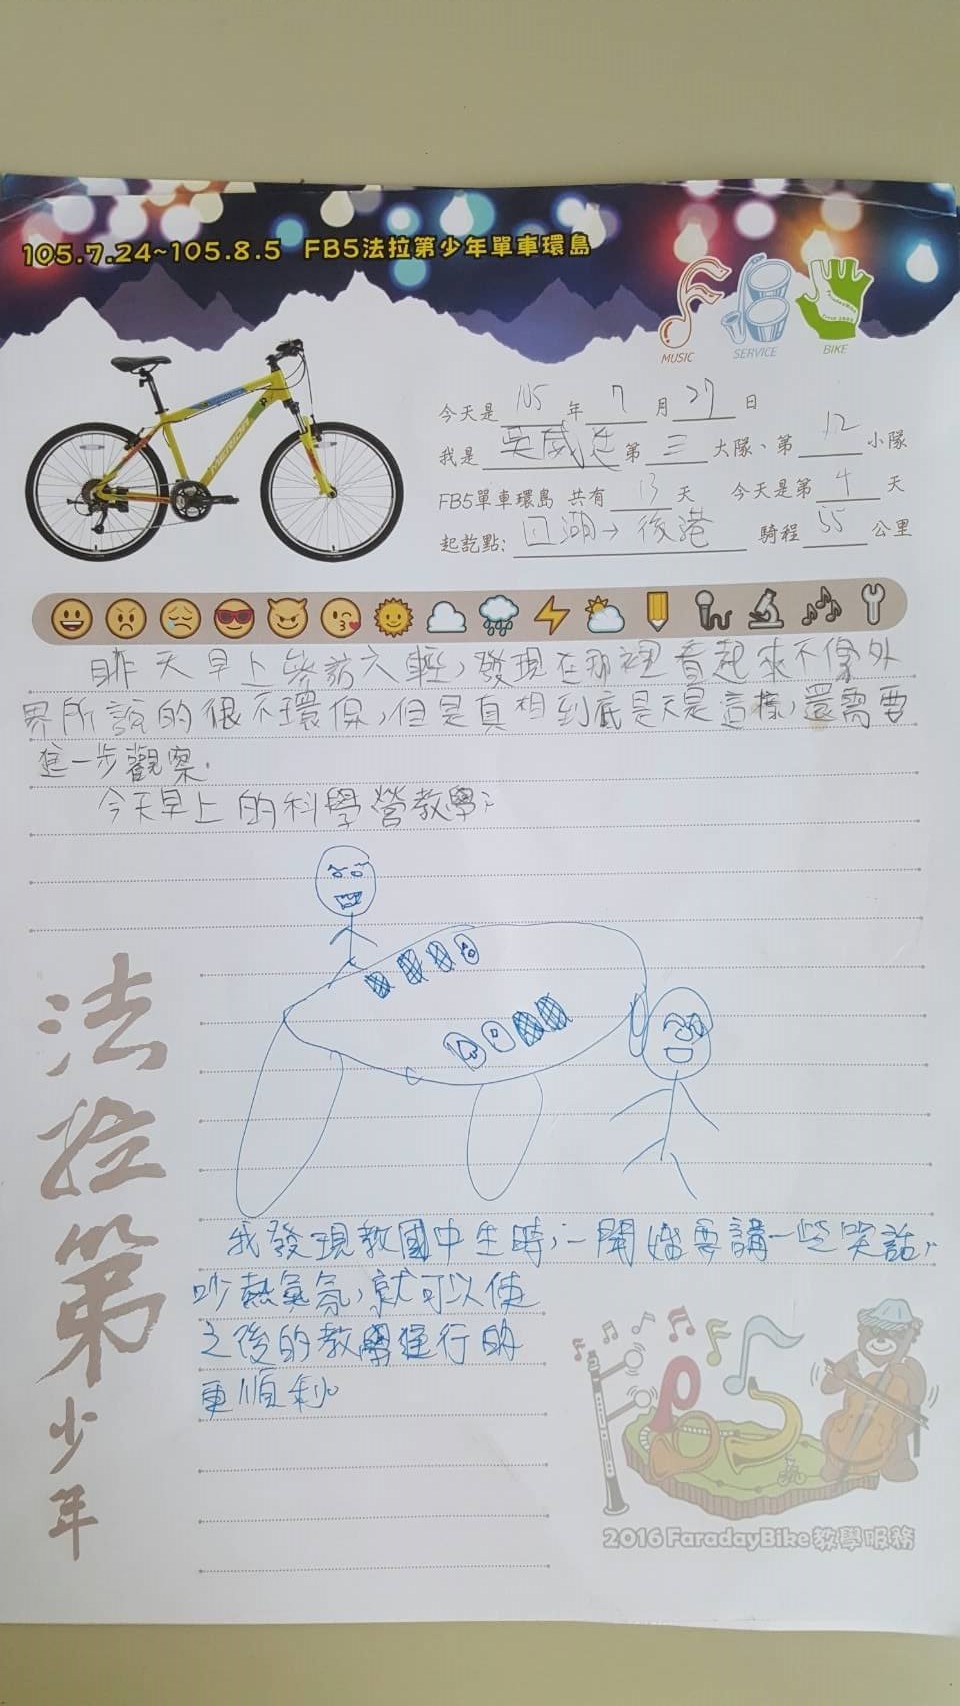 105.7.24~105.8.5 FB5法拉第少年單車環島
MUSIC
SERVICE
BIKE
今天是 105 年 7 月 27 日
我是 吳威廷 第 三 大隊、第 12 小隊
FB5單車環島 共有 13 天 今天是第 4 天
起訖點: 口湖→後港 騎程 55 公里
MERIDA
昨天早上參訪六輕,發現在那裡看起來不像外
界所說的很不環保,但是真相到底是不是這樣,還需要
進一步觀察.
今天早上的科學營教學:
我發現教國中生時,一開始要講一些笑話,
吵熱氣氛,就可以使
之後的教學進行的
更順利
法拉第少年
2016 FaradayBike教學服務